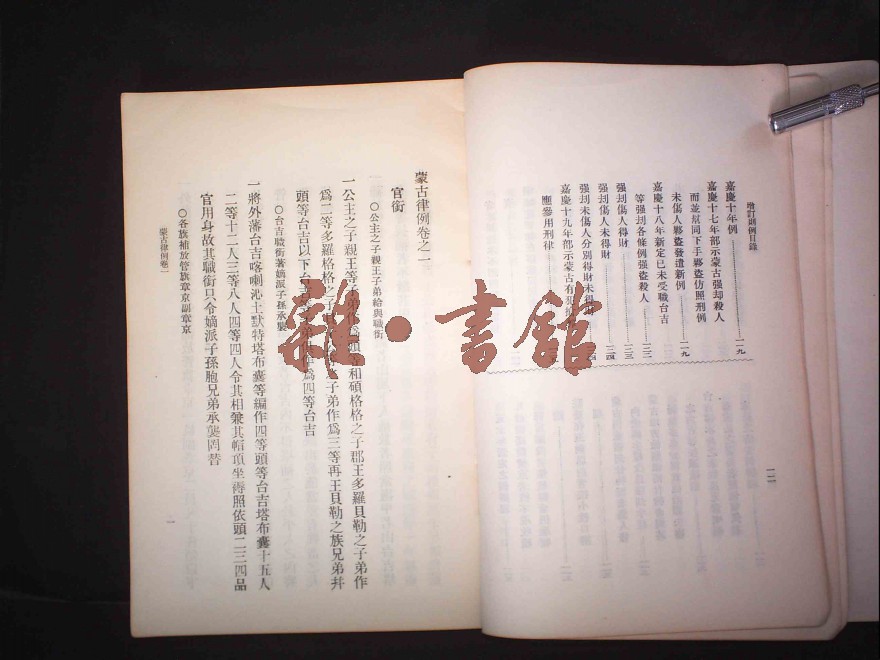 增訂則例目錄
嘉慶十年例 一九
嘉慶十七年部示蒙古强刼殺人
而並幫同下手夥盜仿照刑例
未傷人夥盜發遣新例 一九
嘉慶十八年新定已未受職台吉
等强刼各條例强盜殺人 二三
强刼傷人得財 二三
强刼傷人未得財 二四
强刼未傷人分別得財未得
嘉慶十九年部示蒙古有犯
應參用刑律
一二
蒙古律例卷之一
官銜
○公主之子親王子弟給與職銜
一公主之子親王等子弟作爲頭等和碩格格之子郡王多羅貝勒之子弟作
爲二等多羅格格之子 子弟作爲三等再王貝勒之族兄弟幷
頭等台吉以下台吉 作爲四等台吉
○台吉職銜著嫡派子孫承襲
一將外藩台吉喀喇沁土默特塔布囊等編作四等頭等台吉塔布囊十五人
二等十二人三等八人四等四人令其相兼其帽頂坐褥照依頭二三四品
官用身故其職銜只令嫡派子孫胞兄弟承襲罔替
○各旗補放管旗章京副章京
蒙古律例卷一
一
雜·書館